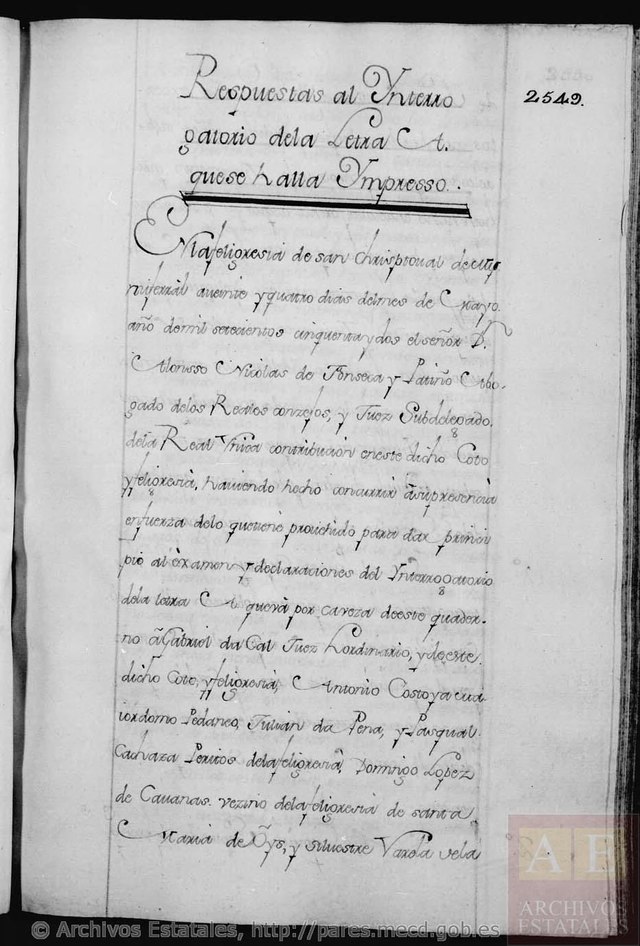 Respuestas al Ynterro
2549.
gatorio dela Letra A.
quese halla Ympresso.
Enlafeligresia de san Chrisptoual de
aueinte yquatro dias delmes de Mayo
año demil setecientos cinquenta ydos el señor Dn.
Alonsso Nicolas de Fonseca y Patiño Abo-
gado delos Reales conzejos, y Juez Subddelegado,
dela Real Vnica contribución eneste dicho Coto
yfeligresia, hauiendo hecho concurrir âsupresencia
enfuerza delo quetiene prouehido para dar princi
pio al êxamen y declaraciones del Ynterrogatorio
dela letra A. quevâ por caveza deeste quader-
no â Gabriel da Cal Juez hordinario, y deeste
dicho Coto, y feligresia, Antonio Costoya Ma
iordomo Pedaneo, Julián da Pena, y Pasqual
Cachaza Peritos delafeligresiâ, Domingo Lopez
de Cauanas vezino delafeligresia de santa
Maria de Oys, y siluestre Varela vela
© Archivos Estatales, http://pares.mecd.gob.es
AE
ARCHIVOS
ESTATALES